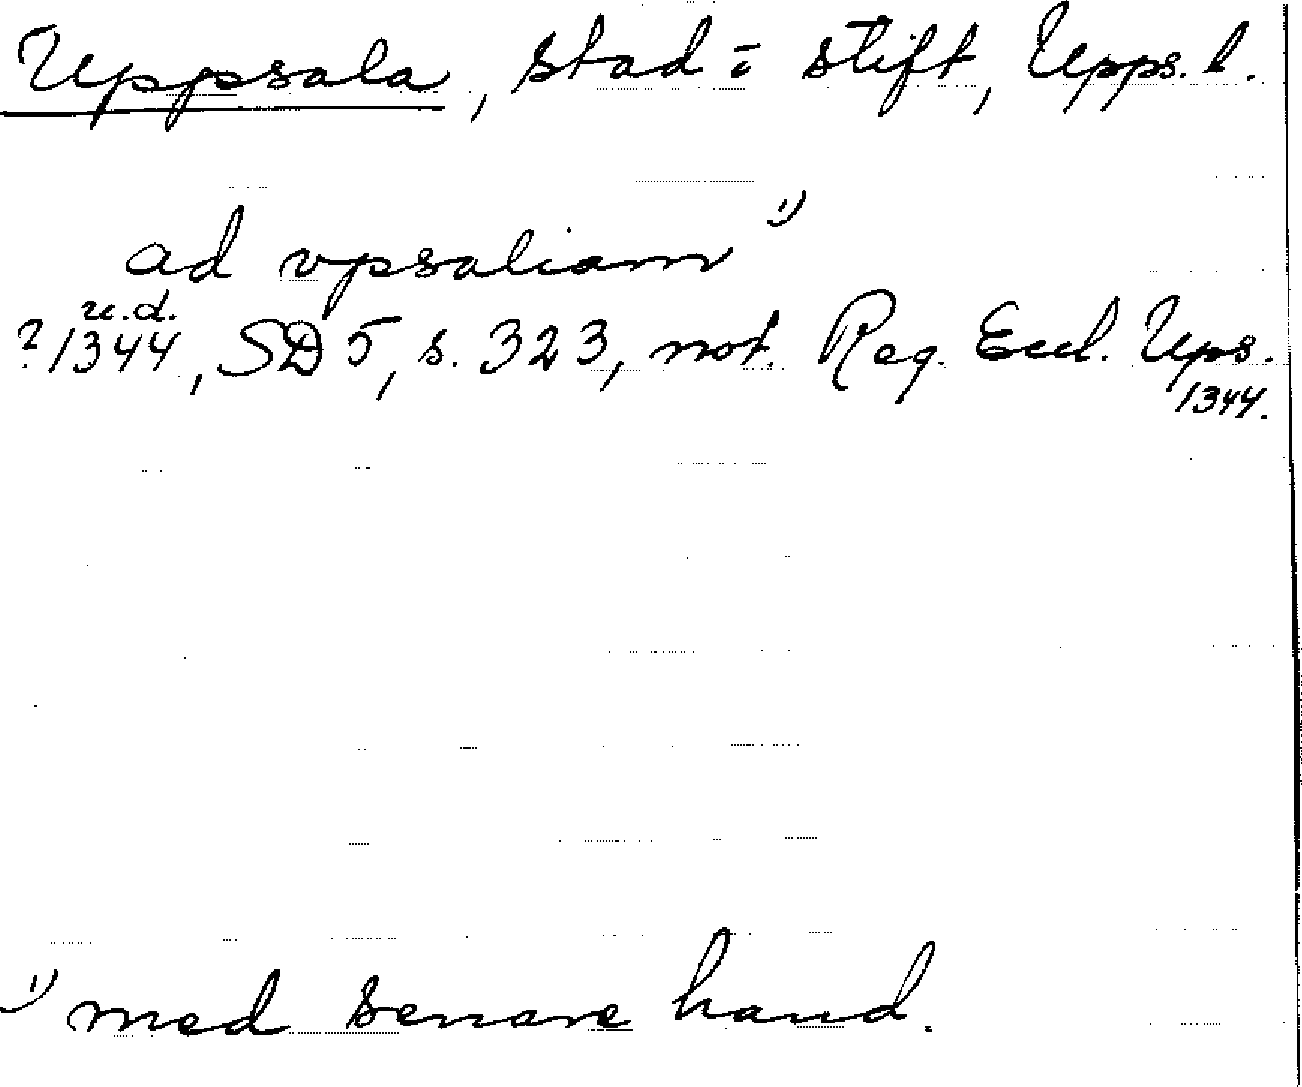 Uppsala, stad i stift, Upps. l.
ad vpsaliam 1)
u.d.
? 1344, SD 5, s. 323, not. Reg. Eccl. Ups.
1344.
1) med senare hand.